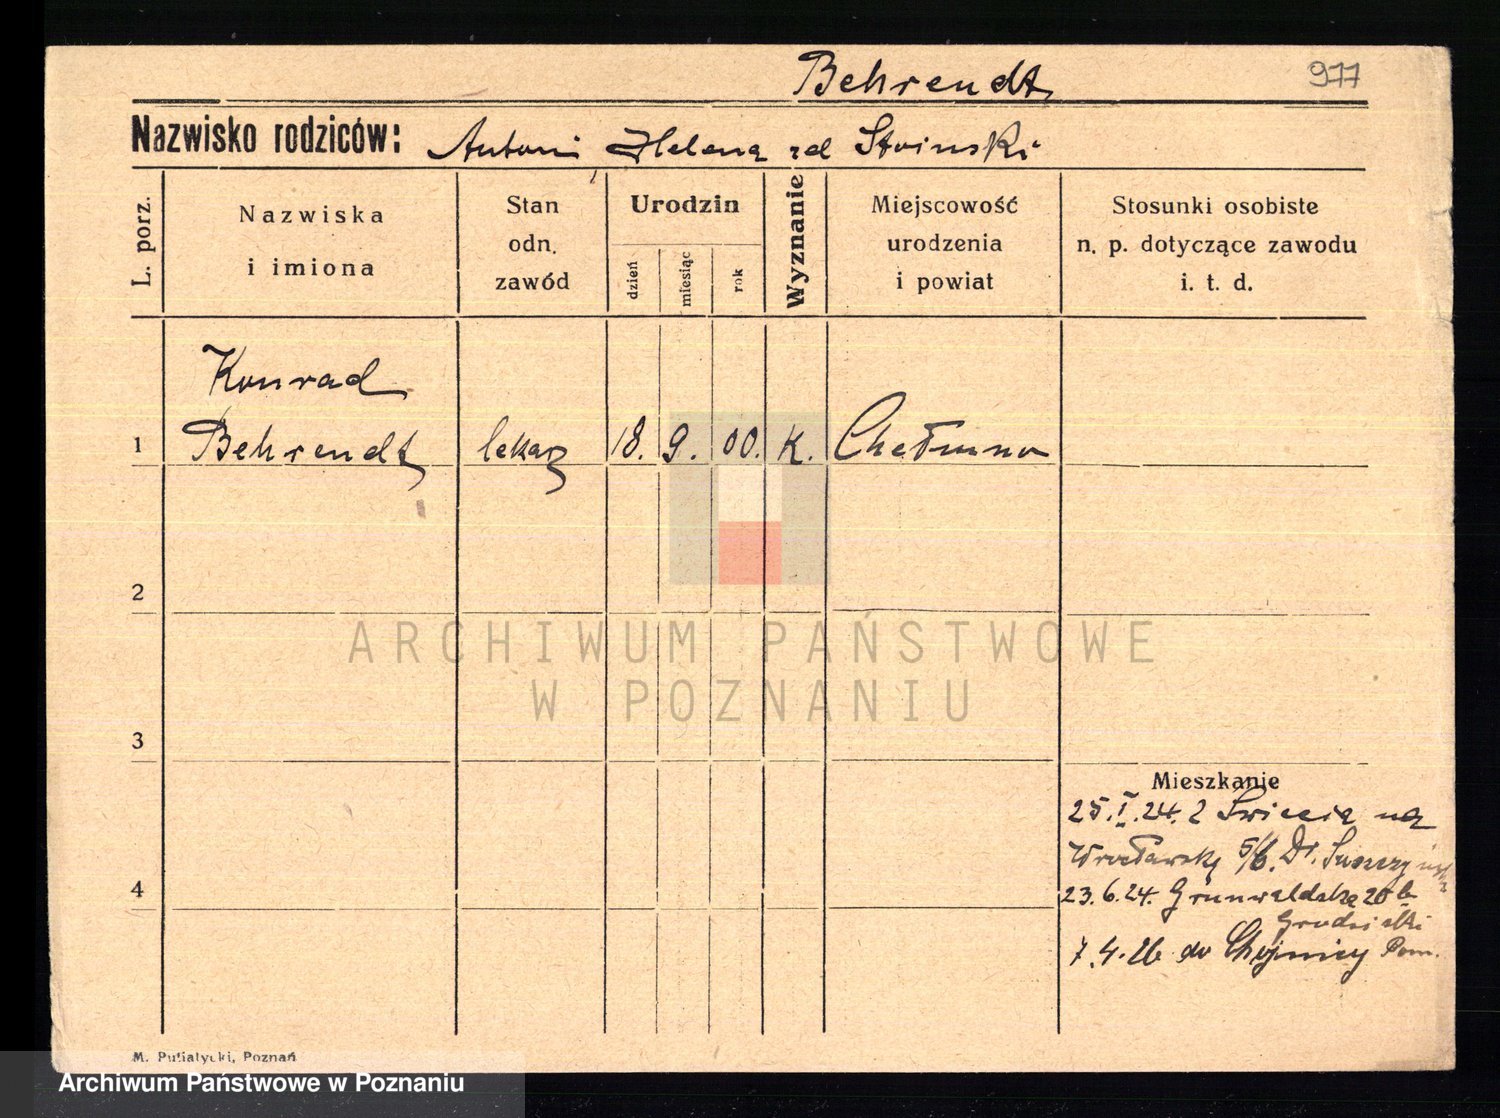 Behrendt
977
Nazwisko rodziców: Antoni Helena zd Stoinski
L. porz.
Nazwiska i imiona
Stan odn. zawód
Urodzin
dzień
miesiąc
rok
Wyznanie
Miejscowość urodzenia i powiat
Stosunki osobiste n. p. dotyczące zawodu i. t. d.
Konrad
1 Behrendt lekarz 18. 9. 00. K. Chełmno
2
ARCHIWUM PAŃSTWOWE
W POZNANIU
3
Mieszkanie
25.I.24. z Świecia na
Wrocławską 5/6. Dr.
4
23.6.24. Grunwaldzka 20b
7.4.26 do Chojnicy Pom.
M. Putiatycki, Poznań
Archiwum Państwowe w Poznaniu